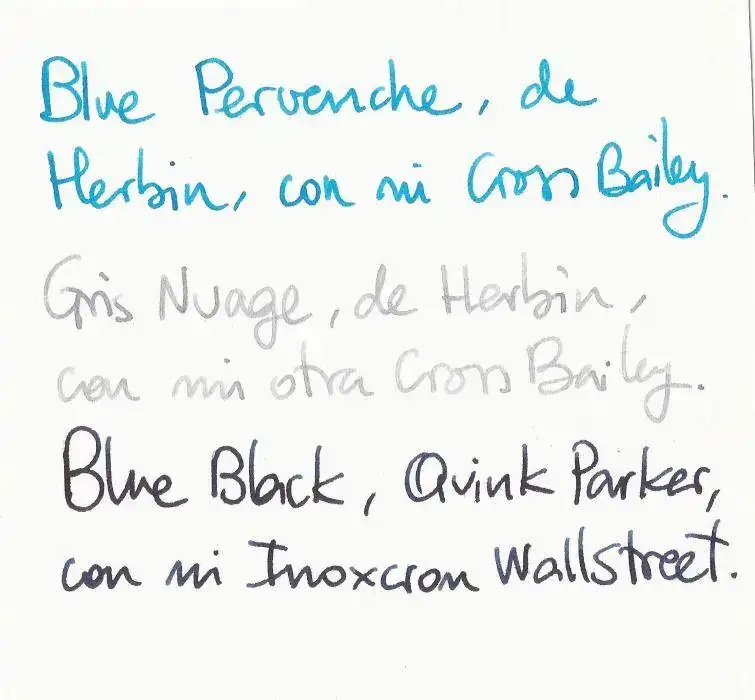 Blue Pervenche, de
Herbin, con mi Cross Bailey.
Gris Nuage, de Herbin,
con mi otra Cross Bailey.
Blue Black, Quink Parker,
con mi Inoxcrom Wallstreet.